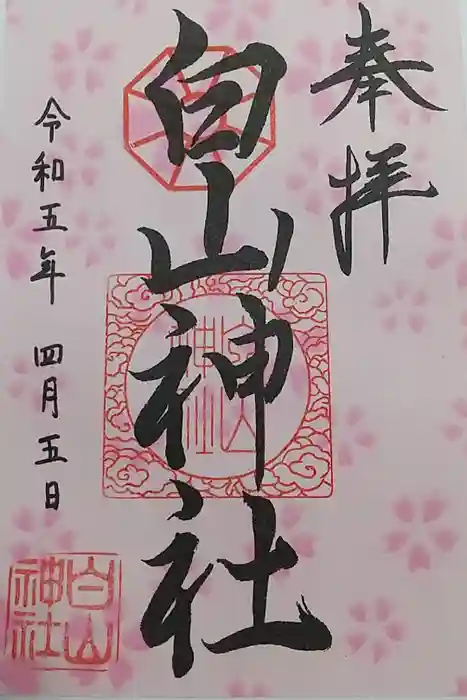 奉拝
白山神社
令和五年 四月五日
白山
神社
白山
神社